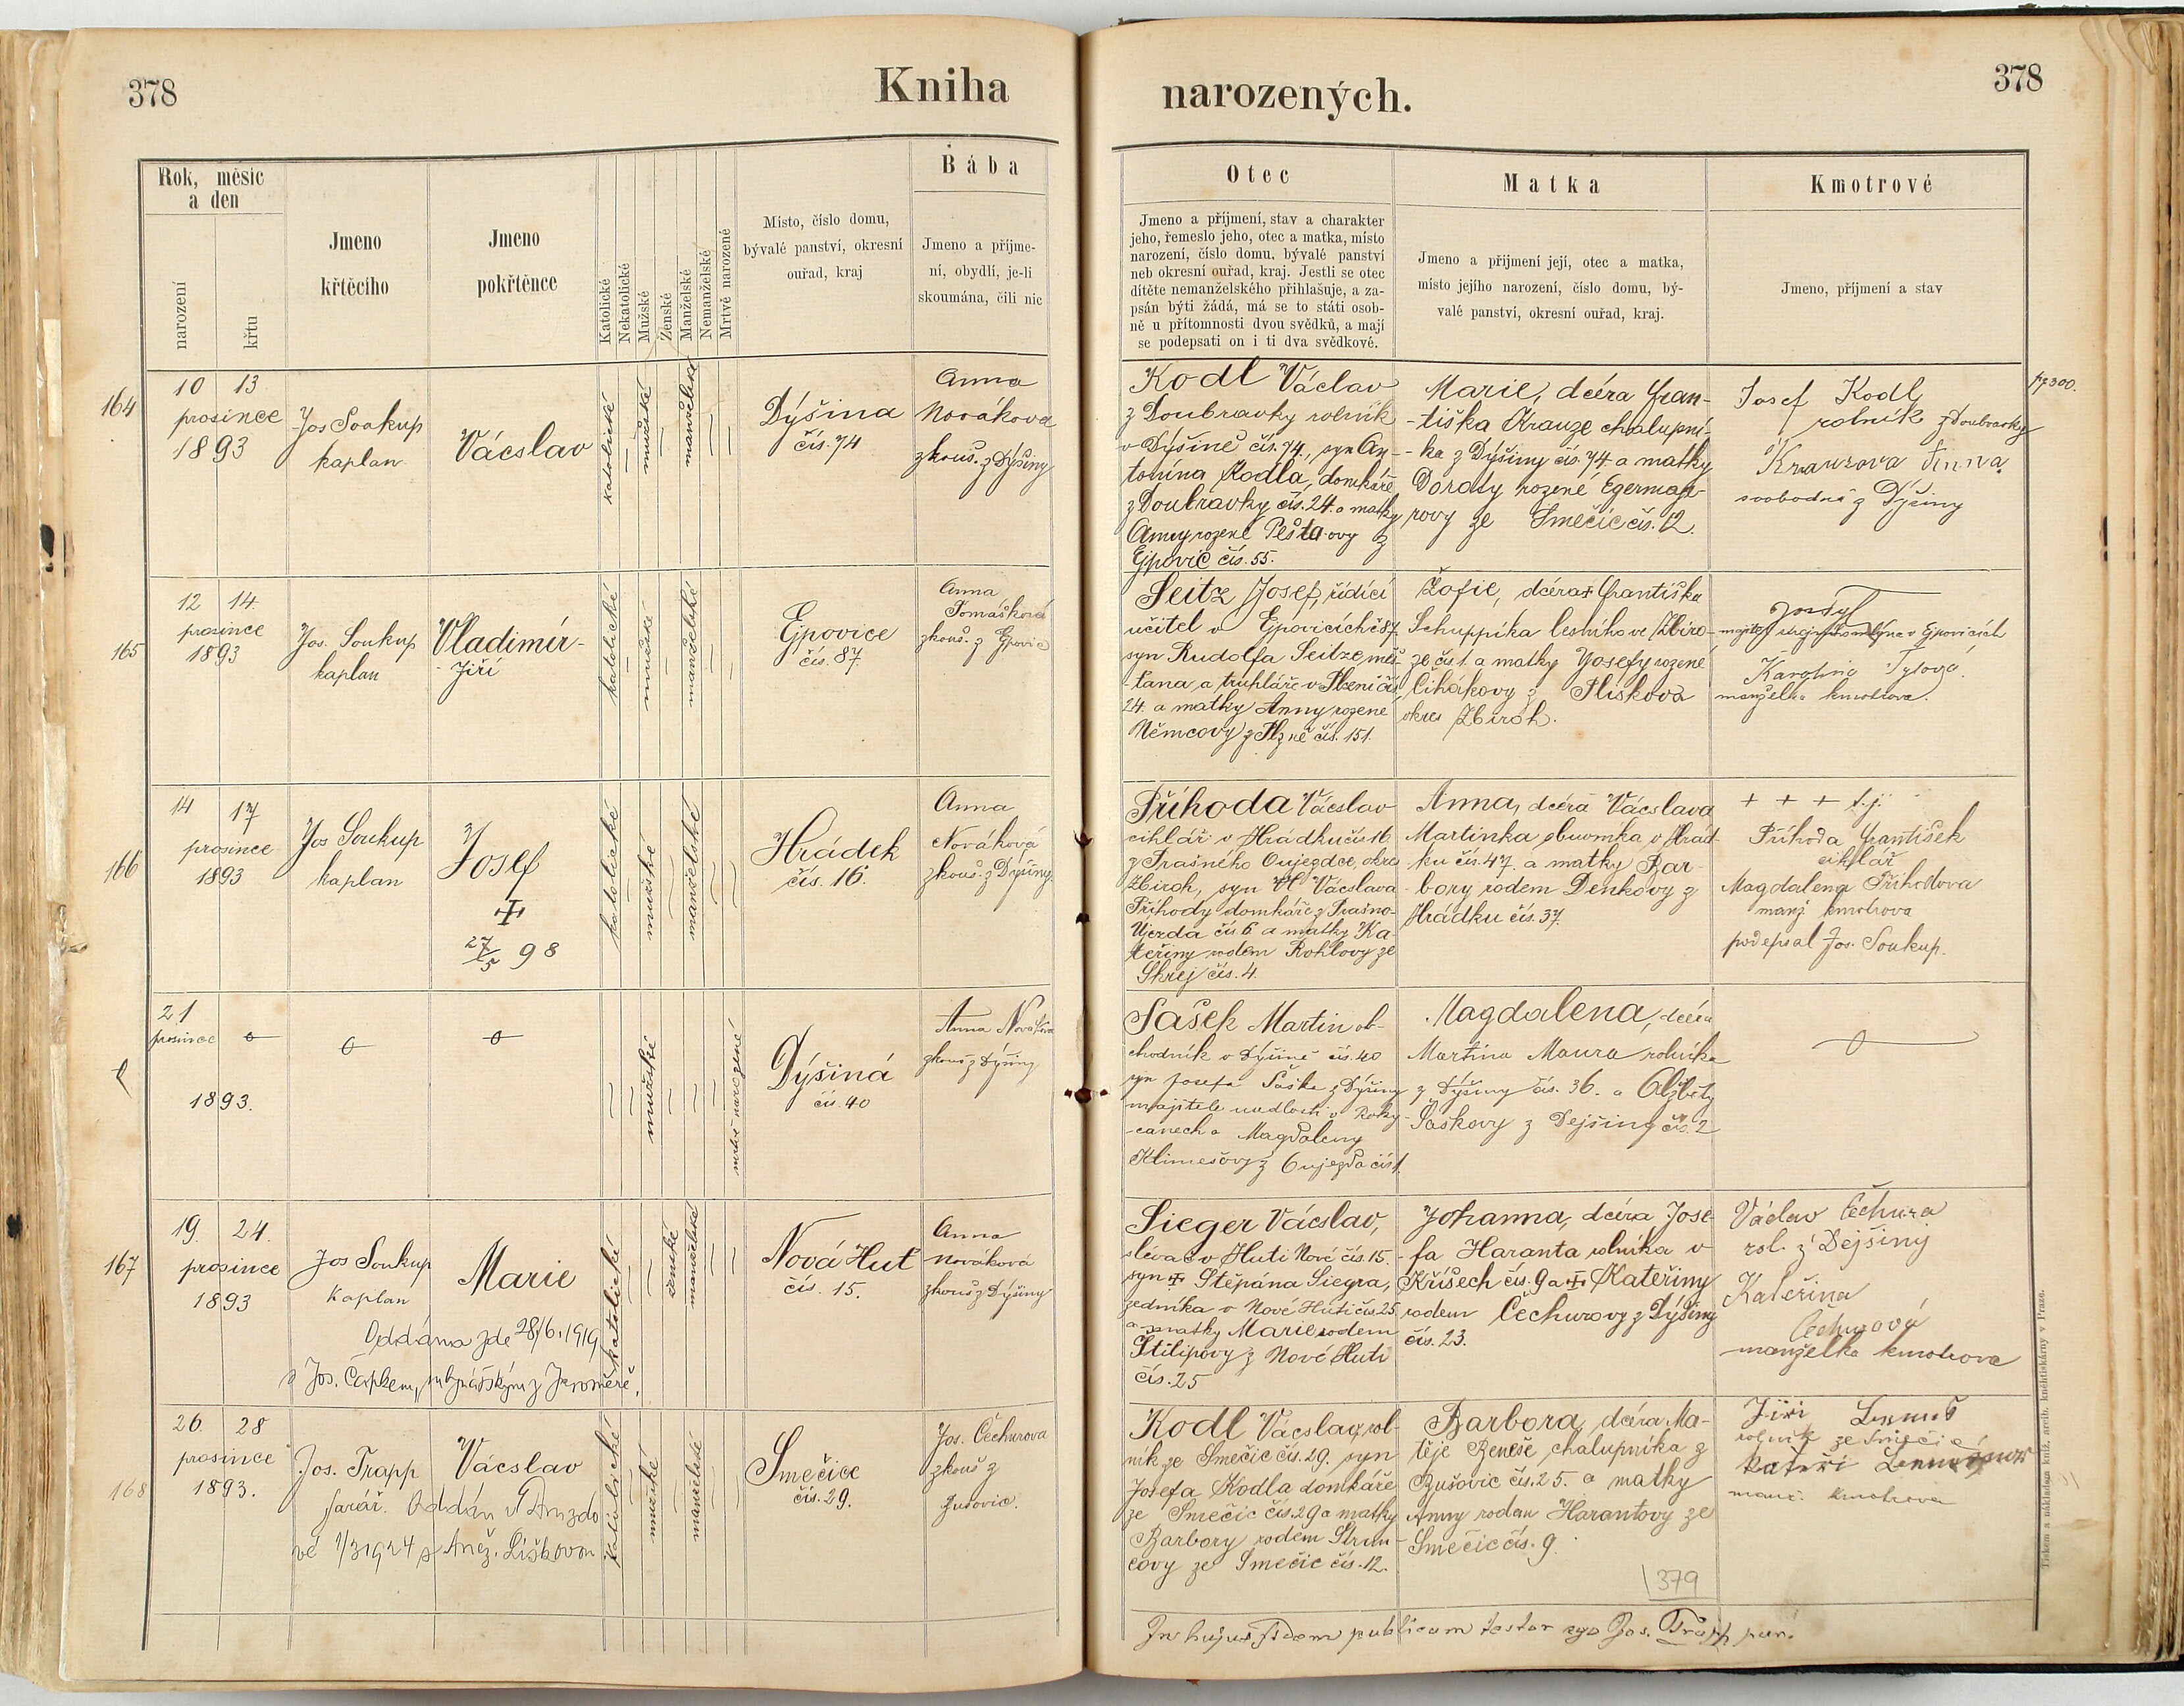 378
Kniha
narozených.
378
Rok, měsíc
a den
narození
křtu
Jmeno
křtěcího
Jmeno
pokřtěnce
Katolické
Nekatolické
Mužské
Ženské
Manželské
Nemanželské
Mrtvě narozené
Místo, číslo domu,
bývalé panství, okresní
ouřad, kraj
Bába
Jmeno a příjme-
ní, obydlí, je-li
skoumána, čili nic
Otec
Jmeno a příjmení, stav a charakter
jeho, řemeslo jeho, otec a matka, místo
narození, číslo domu, bývalé panství
neb okresní ouřad, kraj. Jestli se otec
dítěte nemanželského přihlašuje, a za-
psán býti žádá, má se to státi osob-
ně u přítomnosti dvou svědků, a mají
se podepsati on i ti dva svědkové.
Matka
Jmeno a přijmení její, otec a matka,
místo jejího narození, číslo domu, bý-
valé panství, okresní ouřad, kraj.
Kmotrové
Jmeno, příjmení a stav
164
10 13
prosince
1893
Jos Soukup
kaplan
Vácslav
katolické
mužské
manželské
Dýšina
čís. 74
Anna
Nováková
zkouš. z Dýšiny
Kodl Václav
z Doubravky rolník
v Dýšině čís. 74, syn An-
tonína Kodla, domkáře
z Doubravky čís. 24 a matky
Anny rozené Pešta-ovy z
Ejpovic čís. 55.
Marie, dcéra Fran-
-tiška Krauze chalupní-
-ka z Dýšiny čís. 74 a matky
Doroty rozené Egermaje-
rovy ze Smečic čís. 12.
Josef Kodl
rolník z Doubravky
Krauzova Anna
svobodná z Dýšiny
165
12 14.
prosince
1893
Jos. Soukup
kaplan
Vladimír-
-Jiří
katolické
mužské
manželské
Ejpovice
čís. 87.
Anna
Tomášková
zkouš. z Ejpovic
Seitz Josef, řídící
učitel v Ejpovicích č 87,
syn Rudolfa Seitze, měš-
-tana a truhláře v Plzni čís
24. a matky Anny rozené
Němcovy z Plzně čís. 151.
Žofie, dcéra Františka
Schuppíka lesníka ve Zbiro-
ze čís 1. a matky Josefy rozené
Cihákovy z Plískova
okres Zbiroh.
v Ejpovicích
Karolina Tylová
manželka kmotrova.
166
14 17
prosince
1893
Jos Soukup
kaplan
Josef
27/5 98
katolické
mužské
manželské
Hrádek
čís. 16.
Anna
Nováková
zkouš. z Dýšiny.
Příhoda Vácslav
cihlář v Hrádku čís 16
z Prašného Oujezdce, okres
Zbiroh, syn Vácslava
Příhody domkáře z Prašno-
Újezda čís 6 a matky Ka-
teřiny rodem Rohlovy ze
Skrej čís. 4.
Anna, dcéra Vácslava
Martinka obuvníka v Hrád-
-ku čís. 47. a matky Bar-
-bory rodem Denkovy z
Hrádku čís. 37.
+ + + t.j.
Příhoda František
cihlář
Magdalena Příhodova
manž kmotrova
podepsal Jos. Soukup.
21
prosince
1893.
mužské
mrtvě narozené
Dýšiná
čís. 40
Anna Nováková
zkouš z Dýšiny
Sašek Martin ob-
chodník v Dýšině čís. 40
syn Josefa Saška z Dýšiny
majitele usedlosti v Roky-
-canech a Magdaleny
Klimešovy z Oujezda čís 1.
Magdalena, dcéra
Martina Maura rolníka
z Dýšiny čís. 36. a Alžběty
Saškovy z Dejšiny čís. 2
167
19. 24.
prosince
1893
Jos Soukup
kaplan
Marie
Oddána zde 28/6. 1919
s Jos. Čapkem, z Jaroměře.
katolické
ženské
manželské
Nová Huť
čís. 15.
Anna
Nováková
zkouš z Dýšiny
Sieger Vácslav,
slévač v Huti Nové čís. 15.
syn Štěpána Siegra,
zedníka v Nové Huti čís. 25
a matky Marie rodem
Štilipovy z Nové Huti
čís. 25
Johanna, dcéra Jose-
-fa Haranta rolníka v
Kříšech čís. 9 a Kateřiny
rodem Čechurovy z Dýšiny
čís. 23.
Václav Čechura
rol. z Dejšiny
Kateřina
Čechurová
manželka kmotrova
168
26. 28
prosince
1893.
Jos. Trapp
farář.
Vácslav
Oddán v Druzdo
vé 1/3 1924 s Anež. Liškovou
katolické
mužské
manželské
Smečice
čís. 29.
Jos. Čechurova
zkouš z
Bušovic.
Kodl Vácslav, rol-
ník ze Smečic čís. 29. syn
Josefa Kodla domkáře
ze Smečic čís. 29 a matky
Barbory rodem Strun-
covy ze Smečic čís. 12.
Barbora, dcéra Ma-
těje Beneše, chalupníka z
Bušovic čís. 25. a matky
Anny rodem Harantovy ze
Smečic čís. 9.
Jiří
rolník ze Smečic
manž. kmotrova
379
In hujus fidem publicam testor ego Jos. Trapp par.
Tiskem a nákladem knížecí arcib. knihtiskárny v Praze.